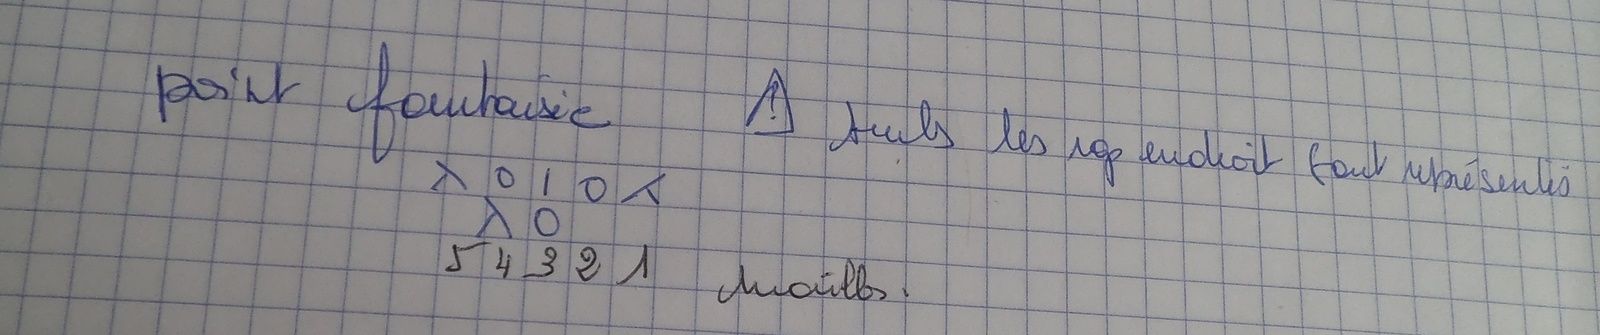 point fantaisie ⚠ seuls les rgs endroit sont représentés
λ 0 1 0 ⋌
λ 0
5 4 3 2 1 mailles.